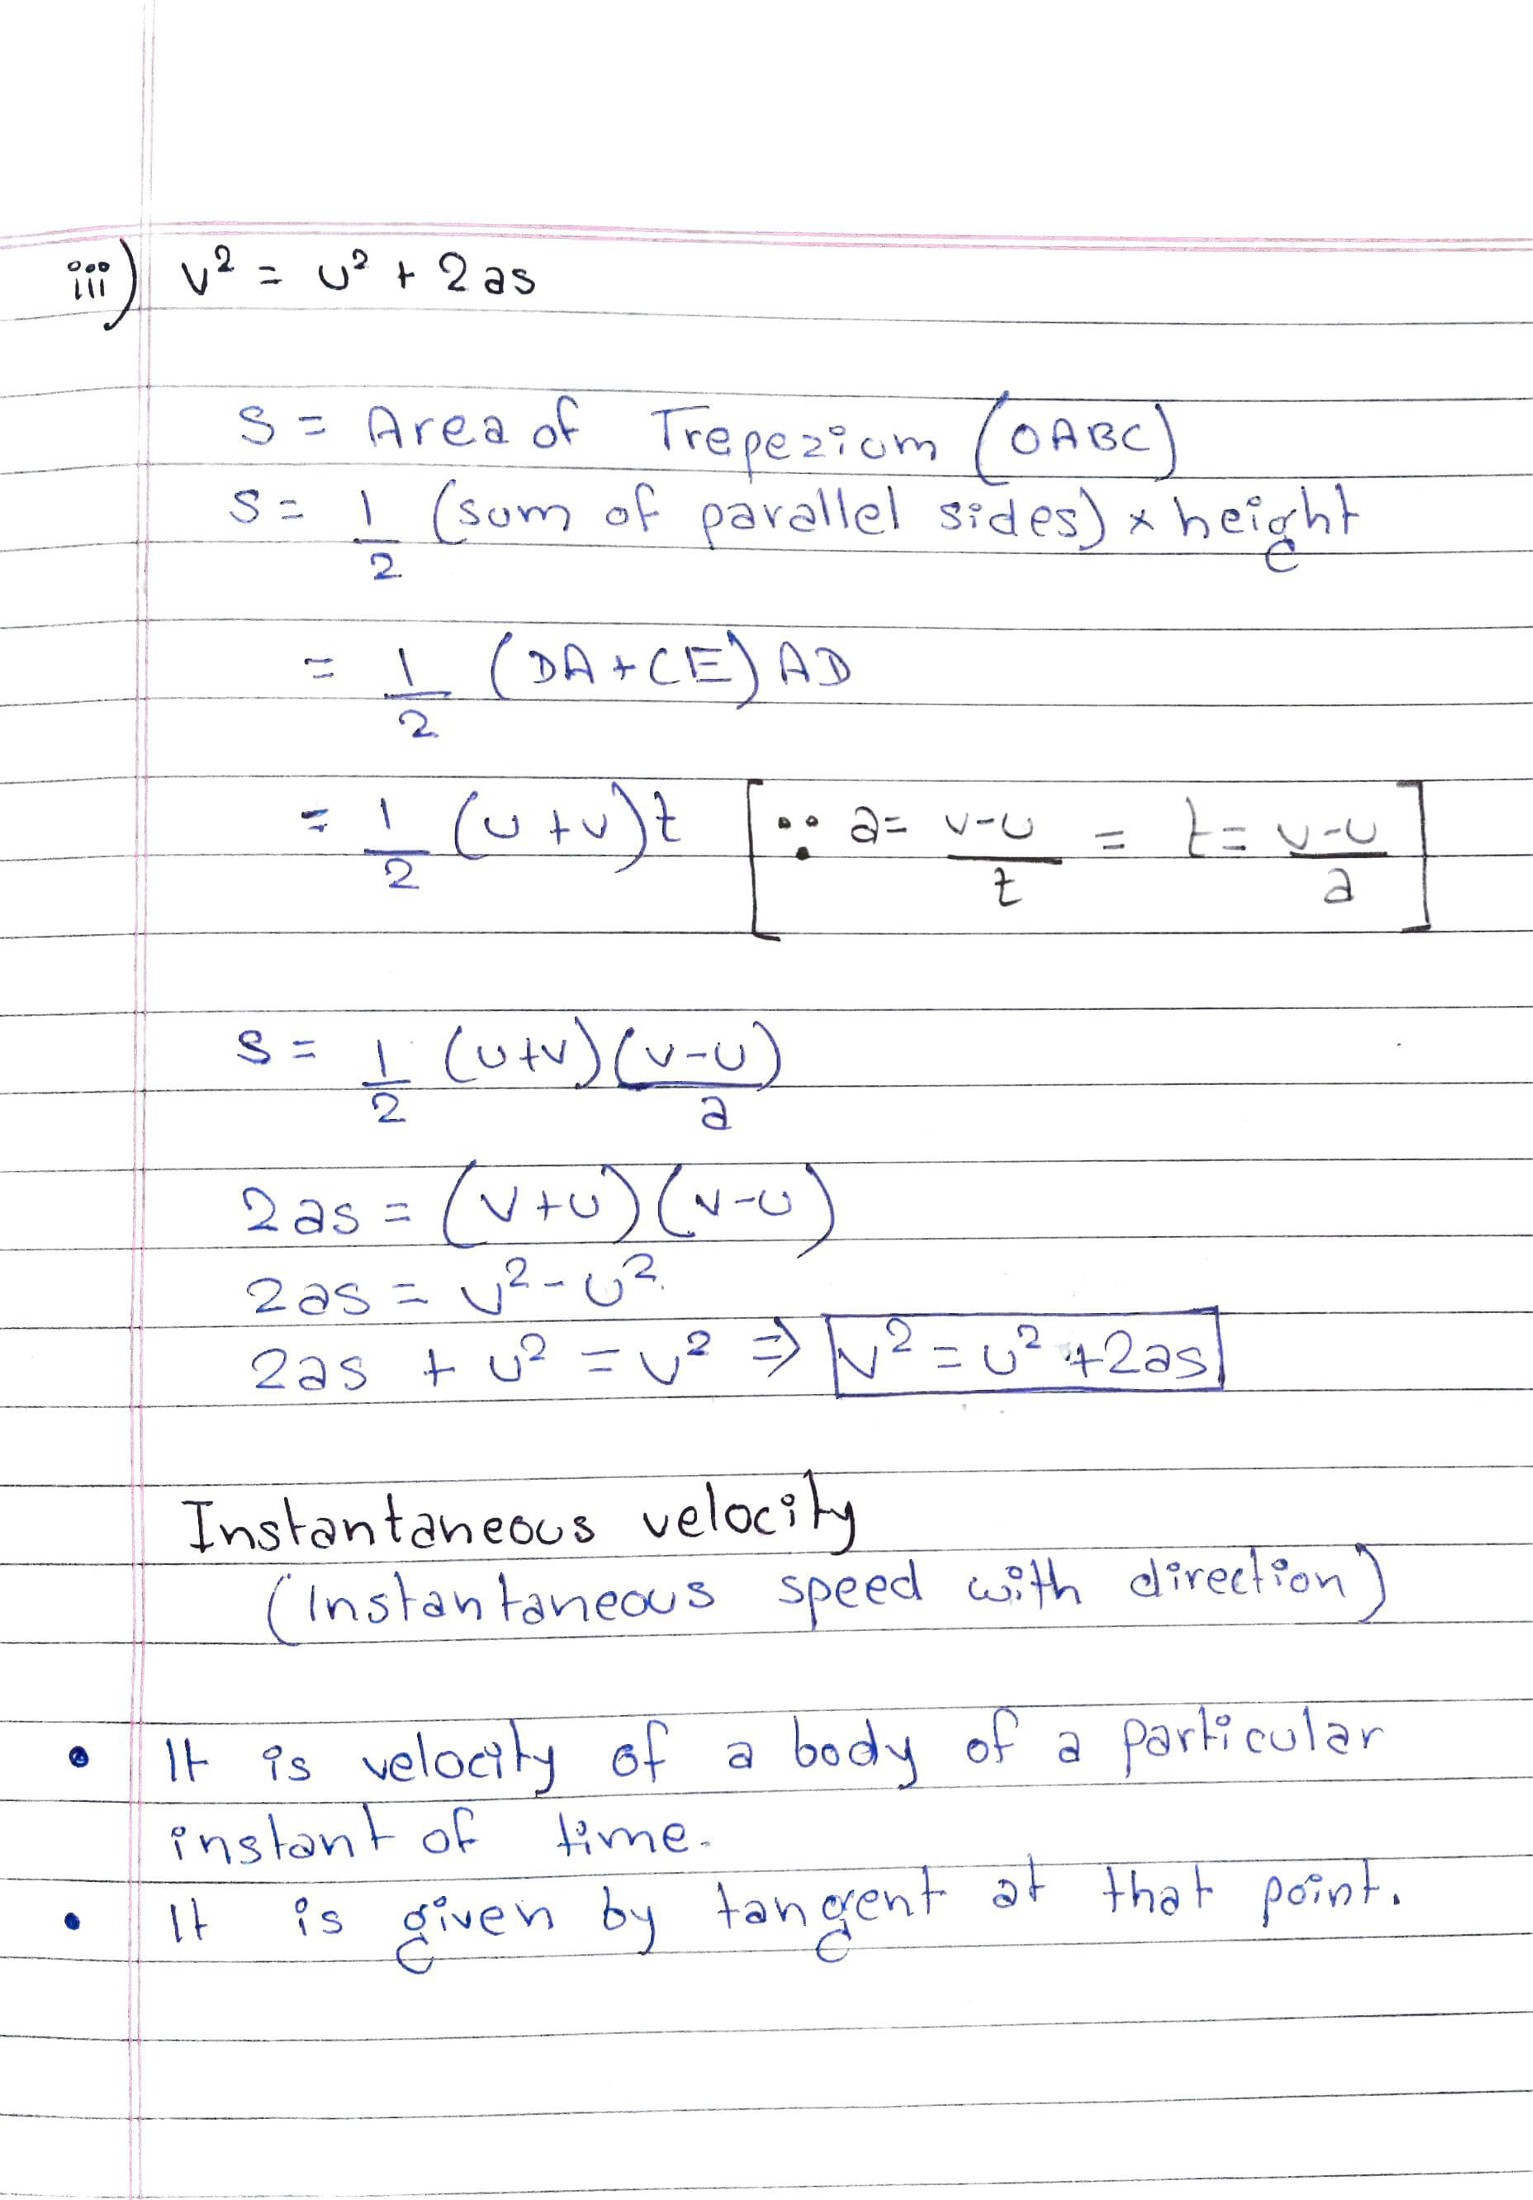 iii) v² = u² + 2as
S = Area of Trepezium (OABC)
S = 1/2 (sum of parallel sides) × height
= 1/2 (DA + CE) AD
= 1/2 (u + v)t [∵ a = v-u/t = t = v-u/a]
S = 1/2 (u+v) (v-u)/a
2as = (v+u) (v-u)
2as = v² - u²
2as + u² = v² ⇒ v² = u² + 2as
Instantaneous velocity
(Instantaneous speed with direction)
• It is velocity of a body of a particular
instant of time.
• It is given by tangent at that point.